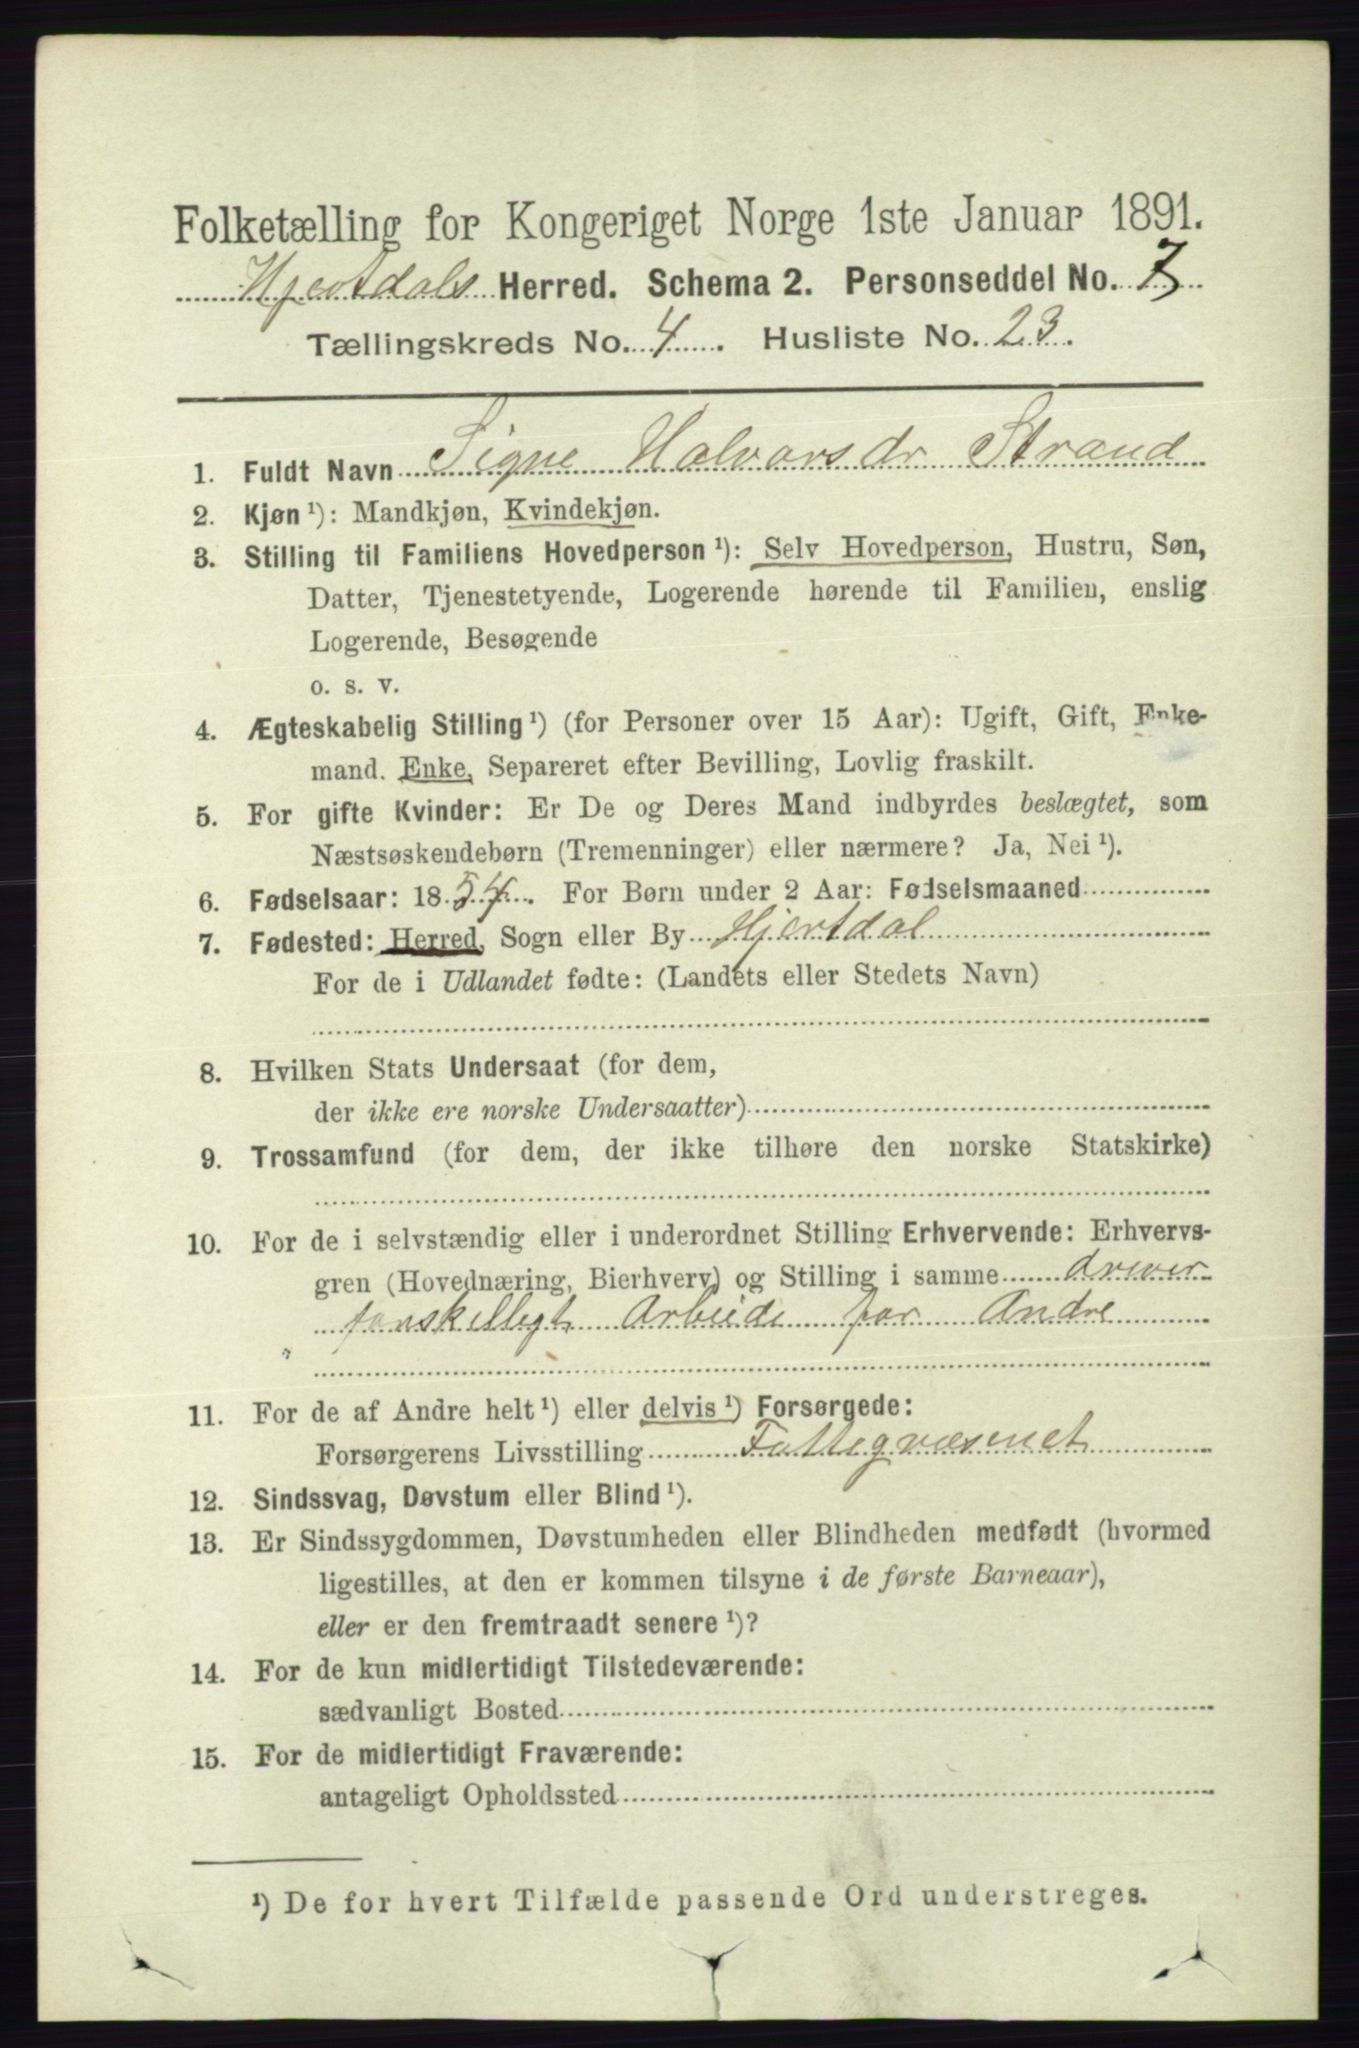 Folketælling for Kongeriget Norge 1ste Januar 1891.
Hjertdals Herred. Schema 2. Personseddel No. 7
Tællingskreds No. 4. Husliste No. 23.
1. Fuldt Navn Signe Halvorsdr Strand
2. Kjøn ¹): Mandkjøn, Kvindekjøn.
3. Stilling til Familiens Hovedperson ¹): Selv Hovedperson, Hustru, Søn,
Datter, Tjenestetyende, Logerende hørende til Familien, enslig
Logerende, Besøgende
o. s. v.
4. Ægteskabelig Stilling ¹) (for Personer over 15 Aar): Ugift, Gift, Enke-
mand. Enke, Separeret efter Bevilling, Lovlig fraskilt.
5. For gifte Kvinder: Er De og Deres Mand indbyrdes beslægtet, som
Næstsøskendebørn (Tremenninger) eller nærmere? Ja, Nei ¹).
6. Fødselsaar: 1854. For Børn under 2 Aar: Fødselsmaaned
7. Fødested: Herred, Sogn eller By Hjertdal
For de i Udlandet fødte: (Landets eller Stedets Navn)
8. Hvilken Stats Undersaat (for dem,
der ikke ere norske Undersaatter)
9. Trossamfund (for dem, der ikke tilhøre den norske Statskirke)
10. For de i selvstændig eller i underordnet Stilling Erhvervende: Erhvervs-
gren (Hovednæring, Bierhverv) og Stilling i samme driver
forskelligt Arbeide for Andre
11. For de af Andre helt ¹) eller delvis ¹) Forsørgede:
Forsørgerens Livsstilling Fattigvæsenet
12. Sindssvag, Døvstum eller Blind ¹).
13. Er Sindssygdommen, Døvstumheden eller Blindheden medfødt (hvormed
ligestilles, at den er kommen tilsyne i de første Barneaar),
eller er den fremtraadt senere ¹)?
14. For de kun midlertidigt Tilstedeværende:
sædvanligt Bosted
15. For de midlertidigt Fraværende:
antageligt Opholdssted
¹) De for hvert Tilfælde passende Ord understreges.